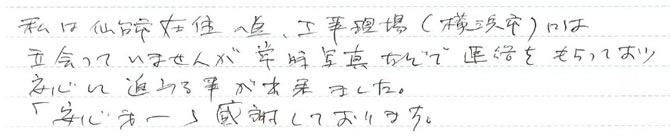 私は仙台市在住の点、工事現場(横浜市)には
立会っていませんが常時写真などで連絡をもらっており
安心して進める事が出来ました。
「安心第一」感謝しております。